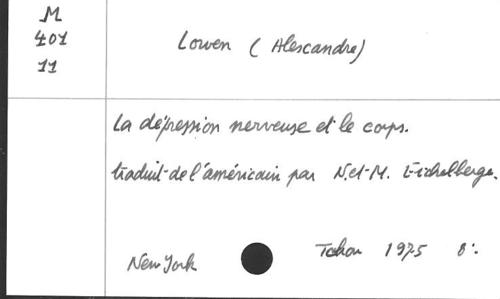 M
401
11
Lowen (Alexandre)
La dépression nerveuse et le corps.
traduit de l'américain par N. et M. Eichelberge.
New York Tchou 1975 8°.